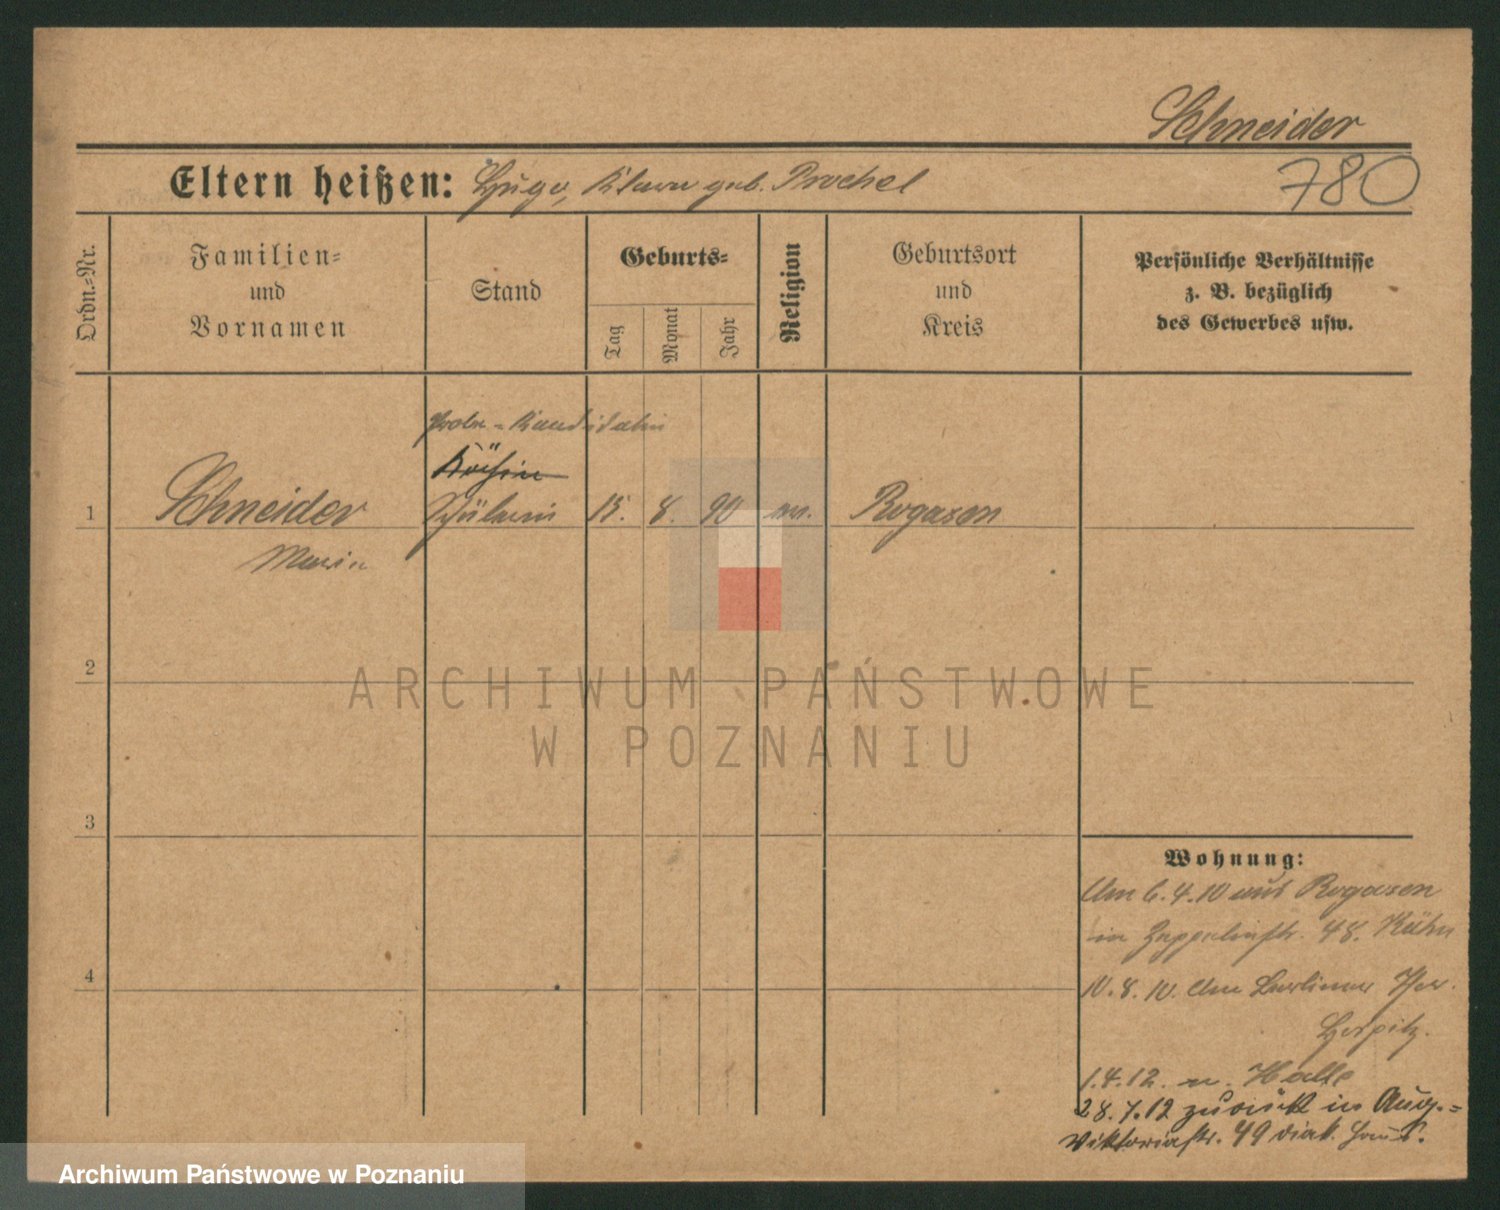 Schneider
Eltern heißen: Hugo, Klara geb. Prochel
780
Ordn.=Nr.
Familien=
und
Vornamen
Stand
Geburts=
Tag
Monat
Jahr
Religion
Geburtsort
und
Kreis
Persönliche Verhältnisse
z. B. bezüglich
des Gewerbes usw.
Probe-Kandidatin
Köchin
1 Schneider Schülerin 15. 8. 90 ev. Rogasen
Maria
2
ARCHIWUM PAŃSTWOWE
W POZNANIU
3
Wohnung:
Am 6.4.10 aus Rogasen
in Zeppelinstr. 48. Kühn
4
10.8.10. Am Berliner Tor.
Hospitz.
1.4.12. n. Halle
28.7.12 zurück in Aug.=
Viktoriastr. 49 diak. Haus.
Archiwum Państwowe w Poznaniu